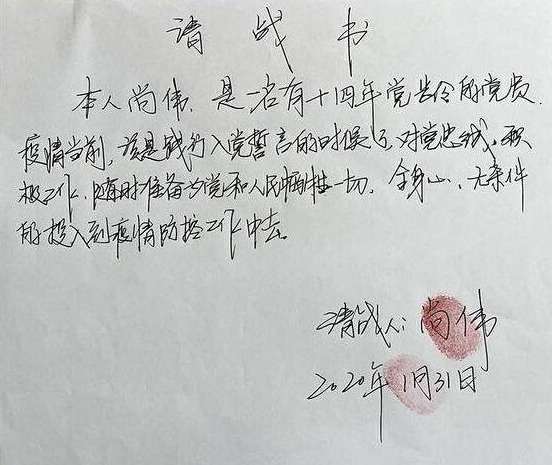 请战书
本人尚伟,是一名有十四年党龄的党员,
疫情当前,该是践行入党誓言的时候了,对党忠诚,积
极工作,随时准备为党和人民牺牲一切,全身心、无条件
的投入到疫情防控工作中去。
请战人:尚伟
2020年1月31日